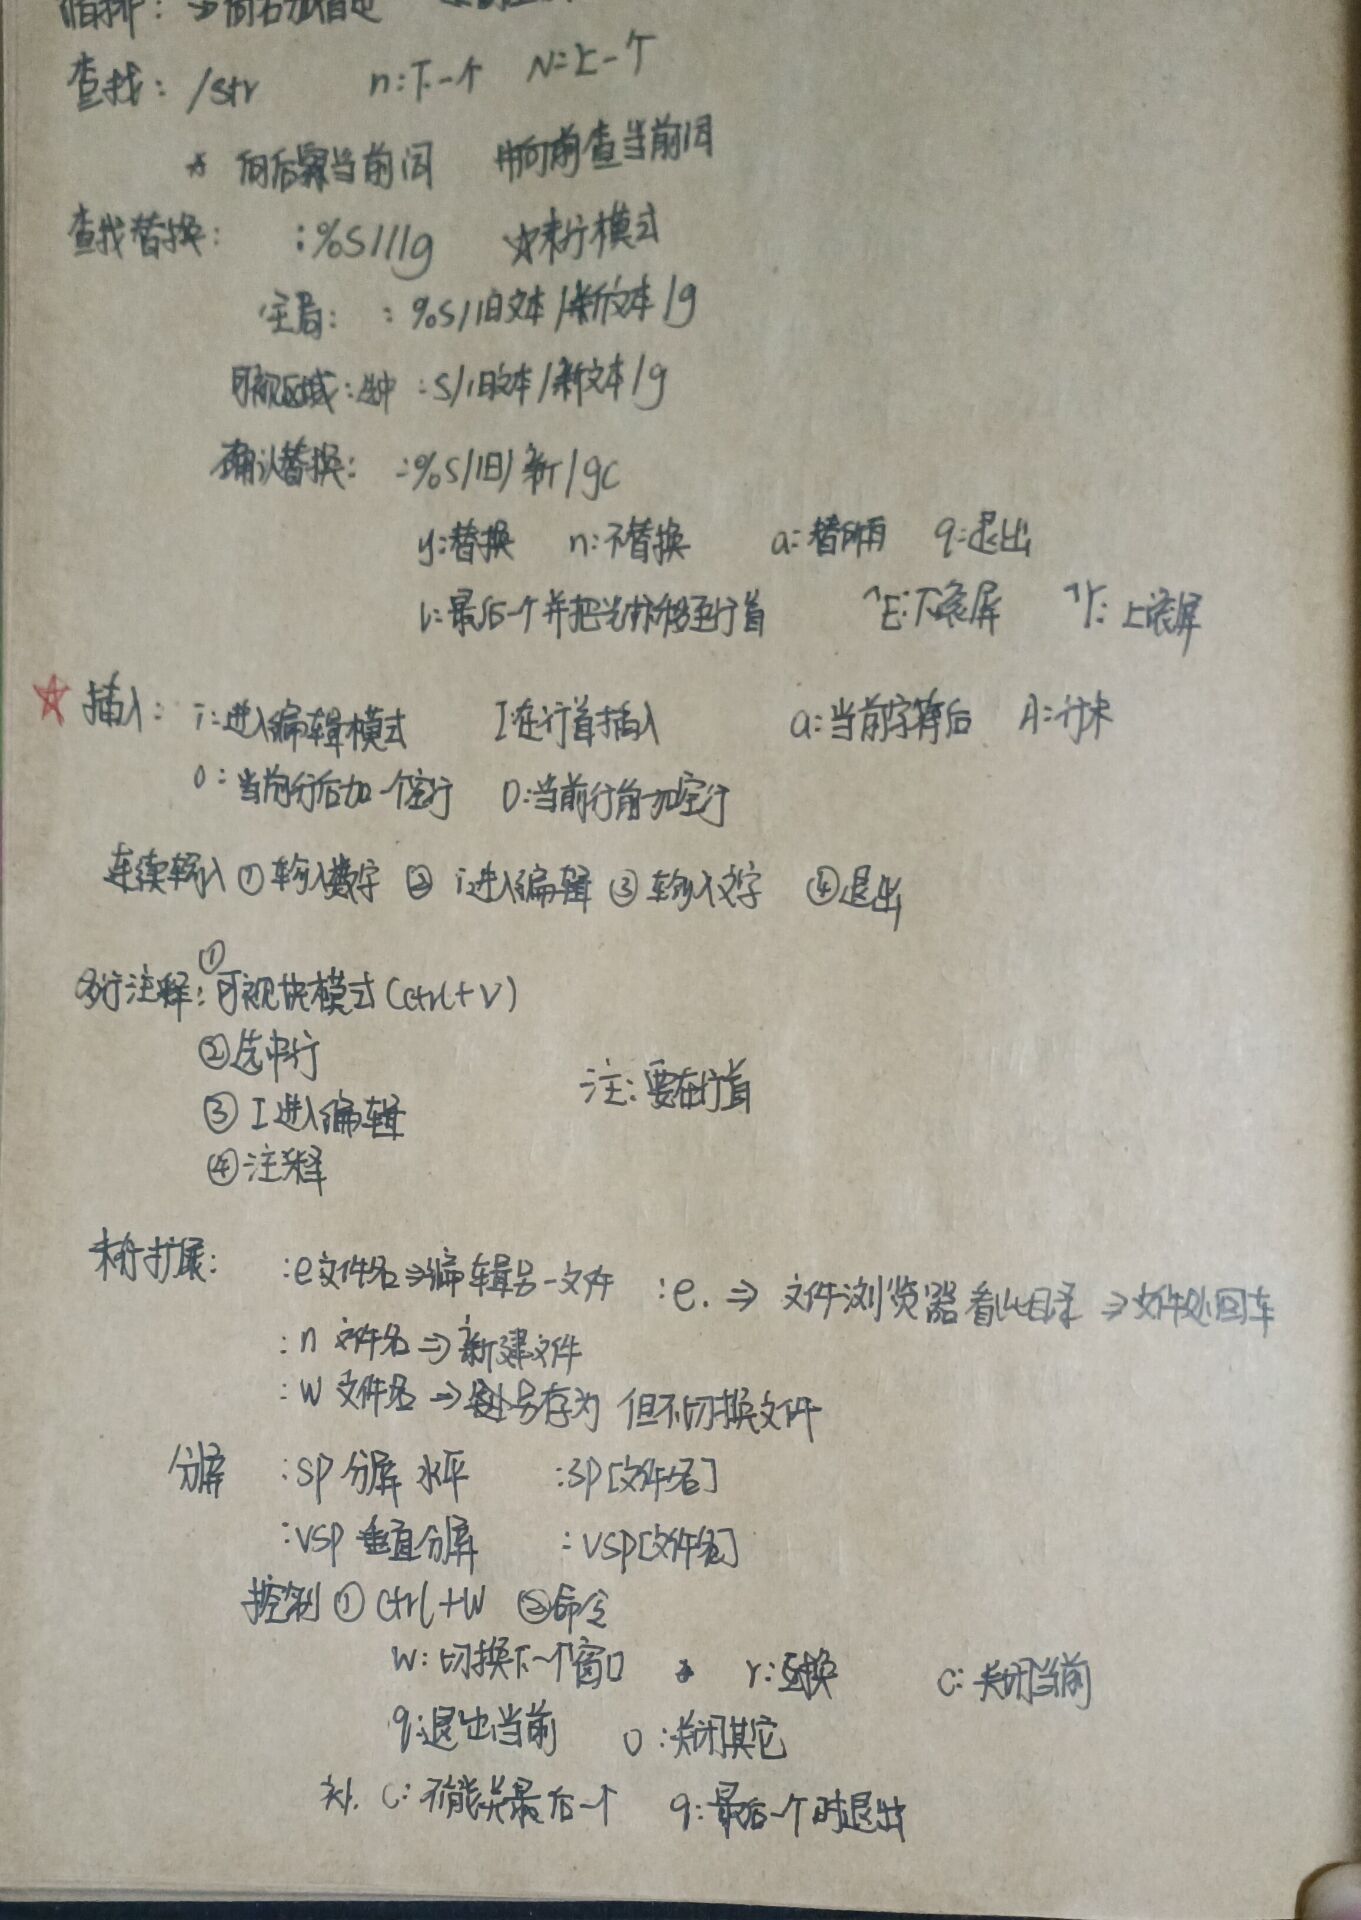 缩排： => 向右加缩进
查找： /str n:下一个 N:上一个
* 向后查当前词 #向前查当前词
查找替换： :%s///g ☆末行模式
全局： :%s/旧文本/新文本/g
可视区域:选中 :s/旧文本/新文本/g
确认替换： :%s/旧/新/gc
y:替换 n:不替换 a:替所有 q:退出
l:最后一个并把光标移至行首 ^E:下滚屏 ^Y:上滚屏
☆ 插入： i:进入编辑模式 I:在行首插入 a:当前字符后 A:行末
o:当前行后加一个空行 O:当前行前加空行
连续输入 ①输入数字 ② i进入编辑 ③输入文字 ④退出
多行注释: ①可视块模式(ctrl+v)
②选中行
注:要在行首
③ I进入编辑
④注释
末行扩展: :e文件名=>编辑另一文件 :e. => 文件浏览器看此目录 =>文件处回车
:n 文件名=>新建文件
:w 文件名=>另存为 但不切换文件
分屏 :sp 分屏 水平 :sp[文件名]
:vsp 垂直分屏 :vsp[文件名]
控制 ① ctrl+w ②命令
w:切换下一个窗口 r:互换 c:关闭当前
q:退出当前 o:关闭其它
补. c:不能关最后一个 q:最后一个时退出